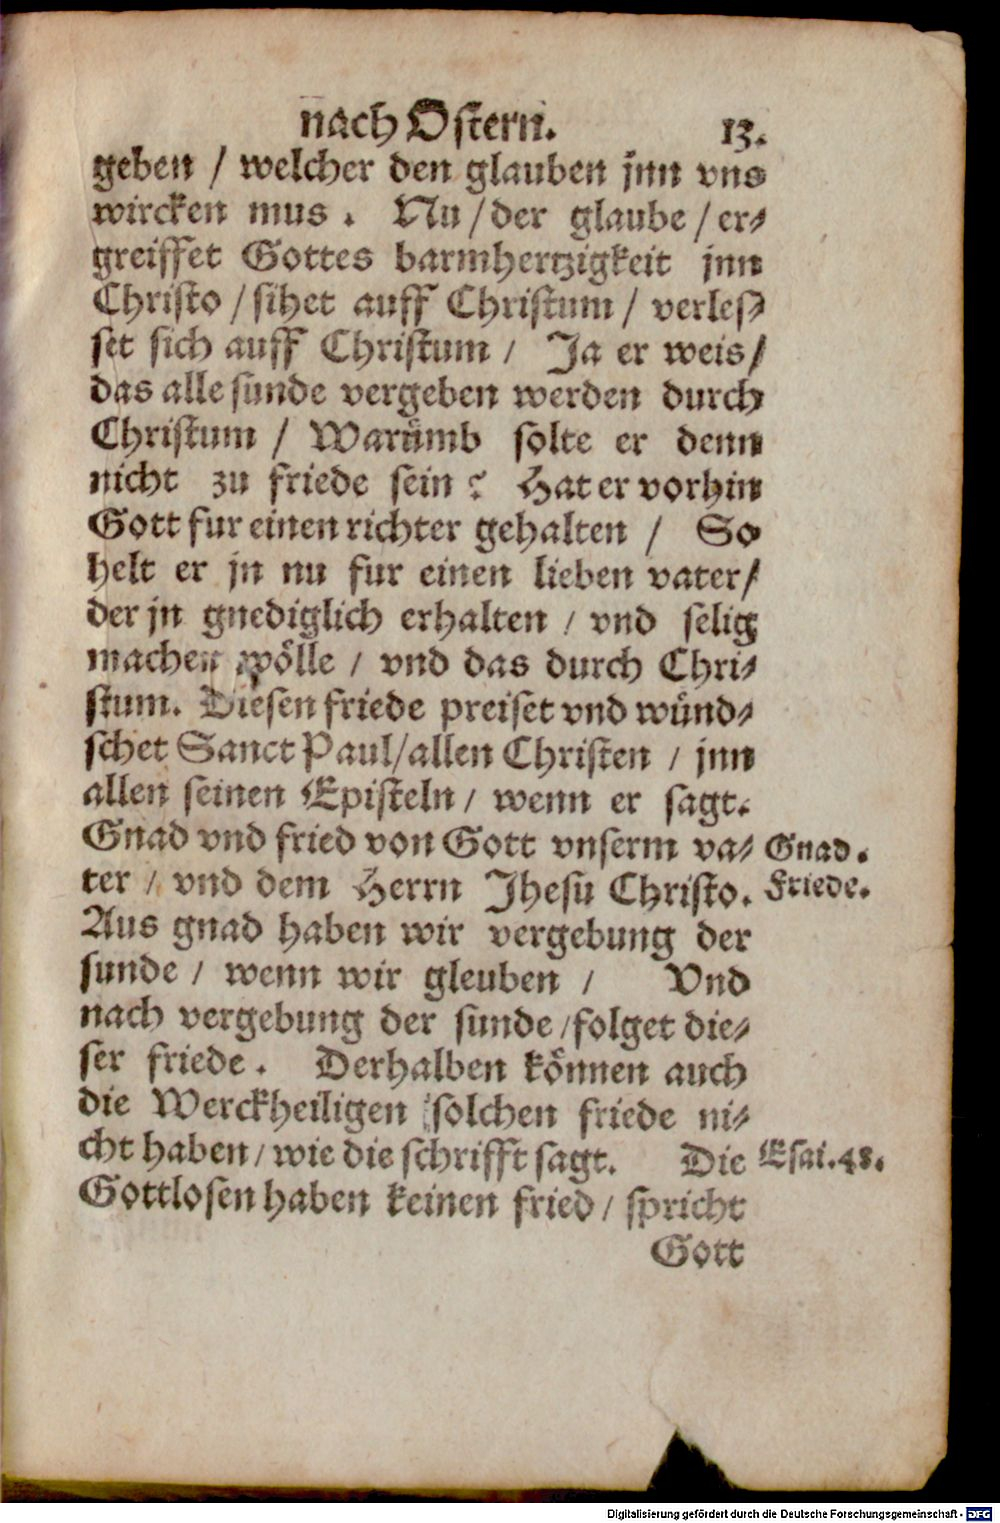 nach Ostern. 13.
geben / welcher den glauben jnn vns
wircken mus . Nu / der glaube / er-
greiffet Gottes barmhertzigkeit jnn
Christo / sihet auff Christum / verles-
set sich auff Christum / Ja er weis /
das alle sunde vergeben werden durch
Christum / Warümb solte er denn
nicht zu friede sein ? Hat er vorhin
Gott fur einen richter gehalten / So
helt er jn nu fur einen lieben vater /
der jn gnediglich erhalten / vnd selig
machen wölle / vnd das durch Chri-
stum. Diesen friede preiset vnd wünd-
schet Sanct Paul / allen Christen / jnn
allen seinen Episteln / wenn er sagt.
Gnad vnd fried von Gott vnserm va- Gnad.
ter / vnd dem Herrn Jhesu Christo. Friede.
Aus gnad haben wir vergebung der
sunde / wenn wir gleuben / Vnd
nach vergebung der sunde / folget die-
ser friede . Derhalben können auch
die Werckheiligen solchen friede ni-
cht haben / wie die schrifft sagt. Die Esai.48.
Gottlosen haben keinen fried / spricht
Gott
Digitalisierung gefördert durch die Deutsche Forschungsgemeinschaft - DFG